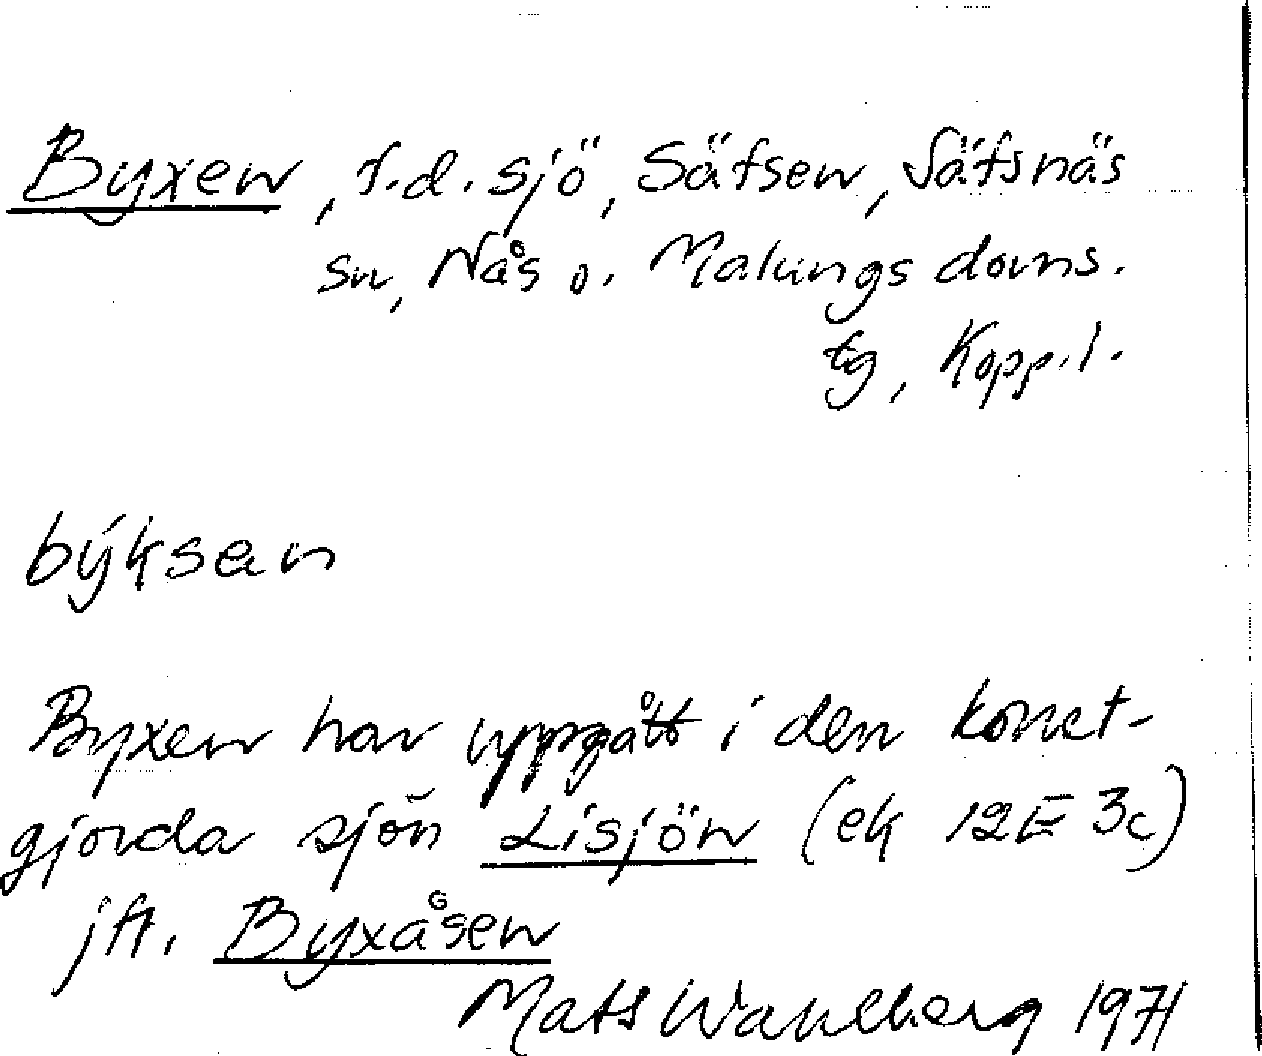 Byxen, f.d. sjö, Säfsen, Säfsnäs
sn, Nås o. Malungs doms.
tg, Kopp. l.
býksən
Byxen har uppgått i den konst-
gjorda sjön Lisjön (ek 12E 3c)
jfr. Byxåsen
Mats Wahlberg 1971